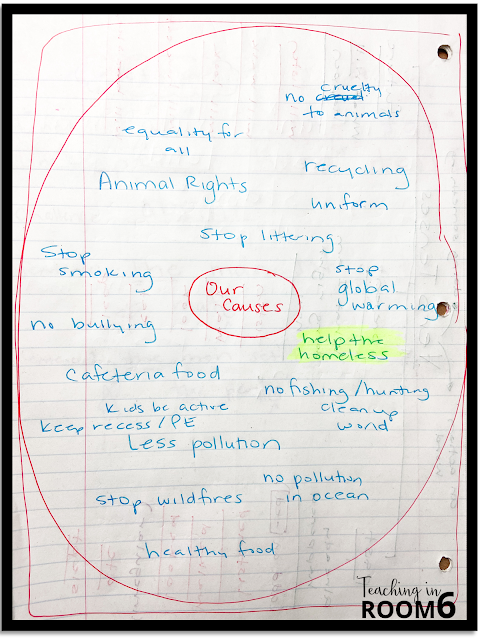 no cruelty
to animals
equality for
all
recycling
Animal Rights
uniform
stop littering
Stop
smoking
Our
Causes
stop
global
warming
no bullying
help the
homeless
cafeteria food
no fishing/hunting
kids be active
clean up
world
keep recess/PE
Less pollution
no pollution
in ocean
stop wildfires
healthy food
Teaching in
ROOM 6